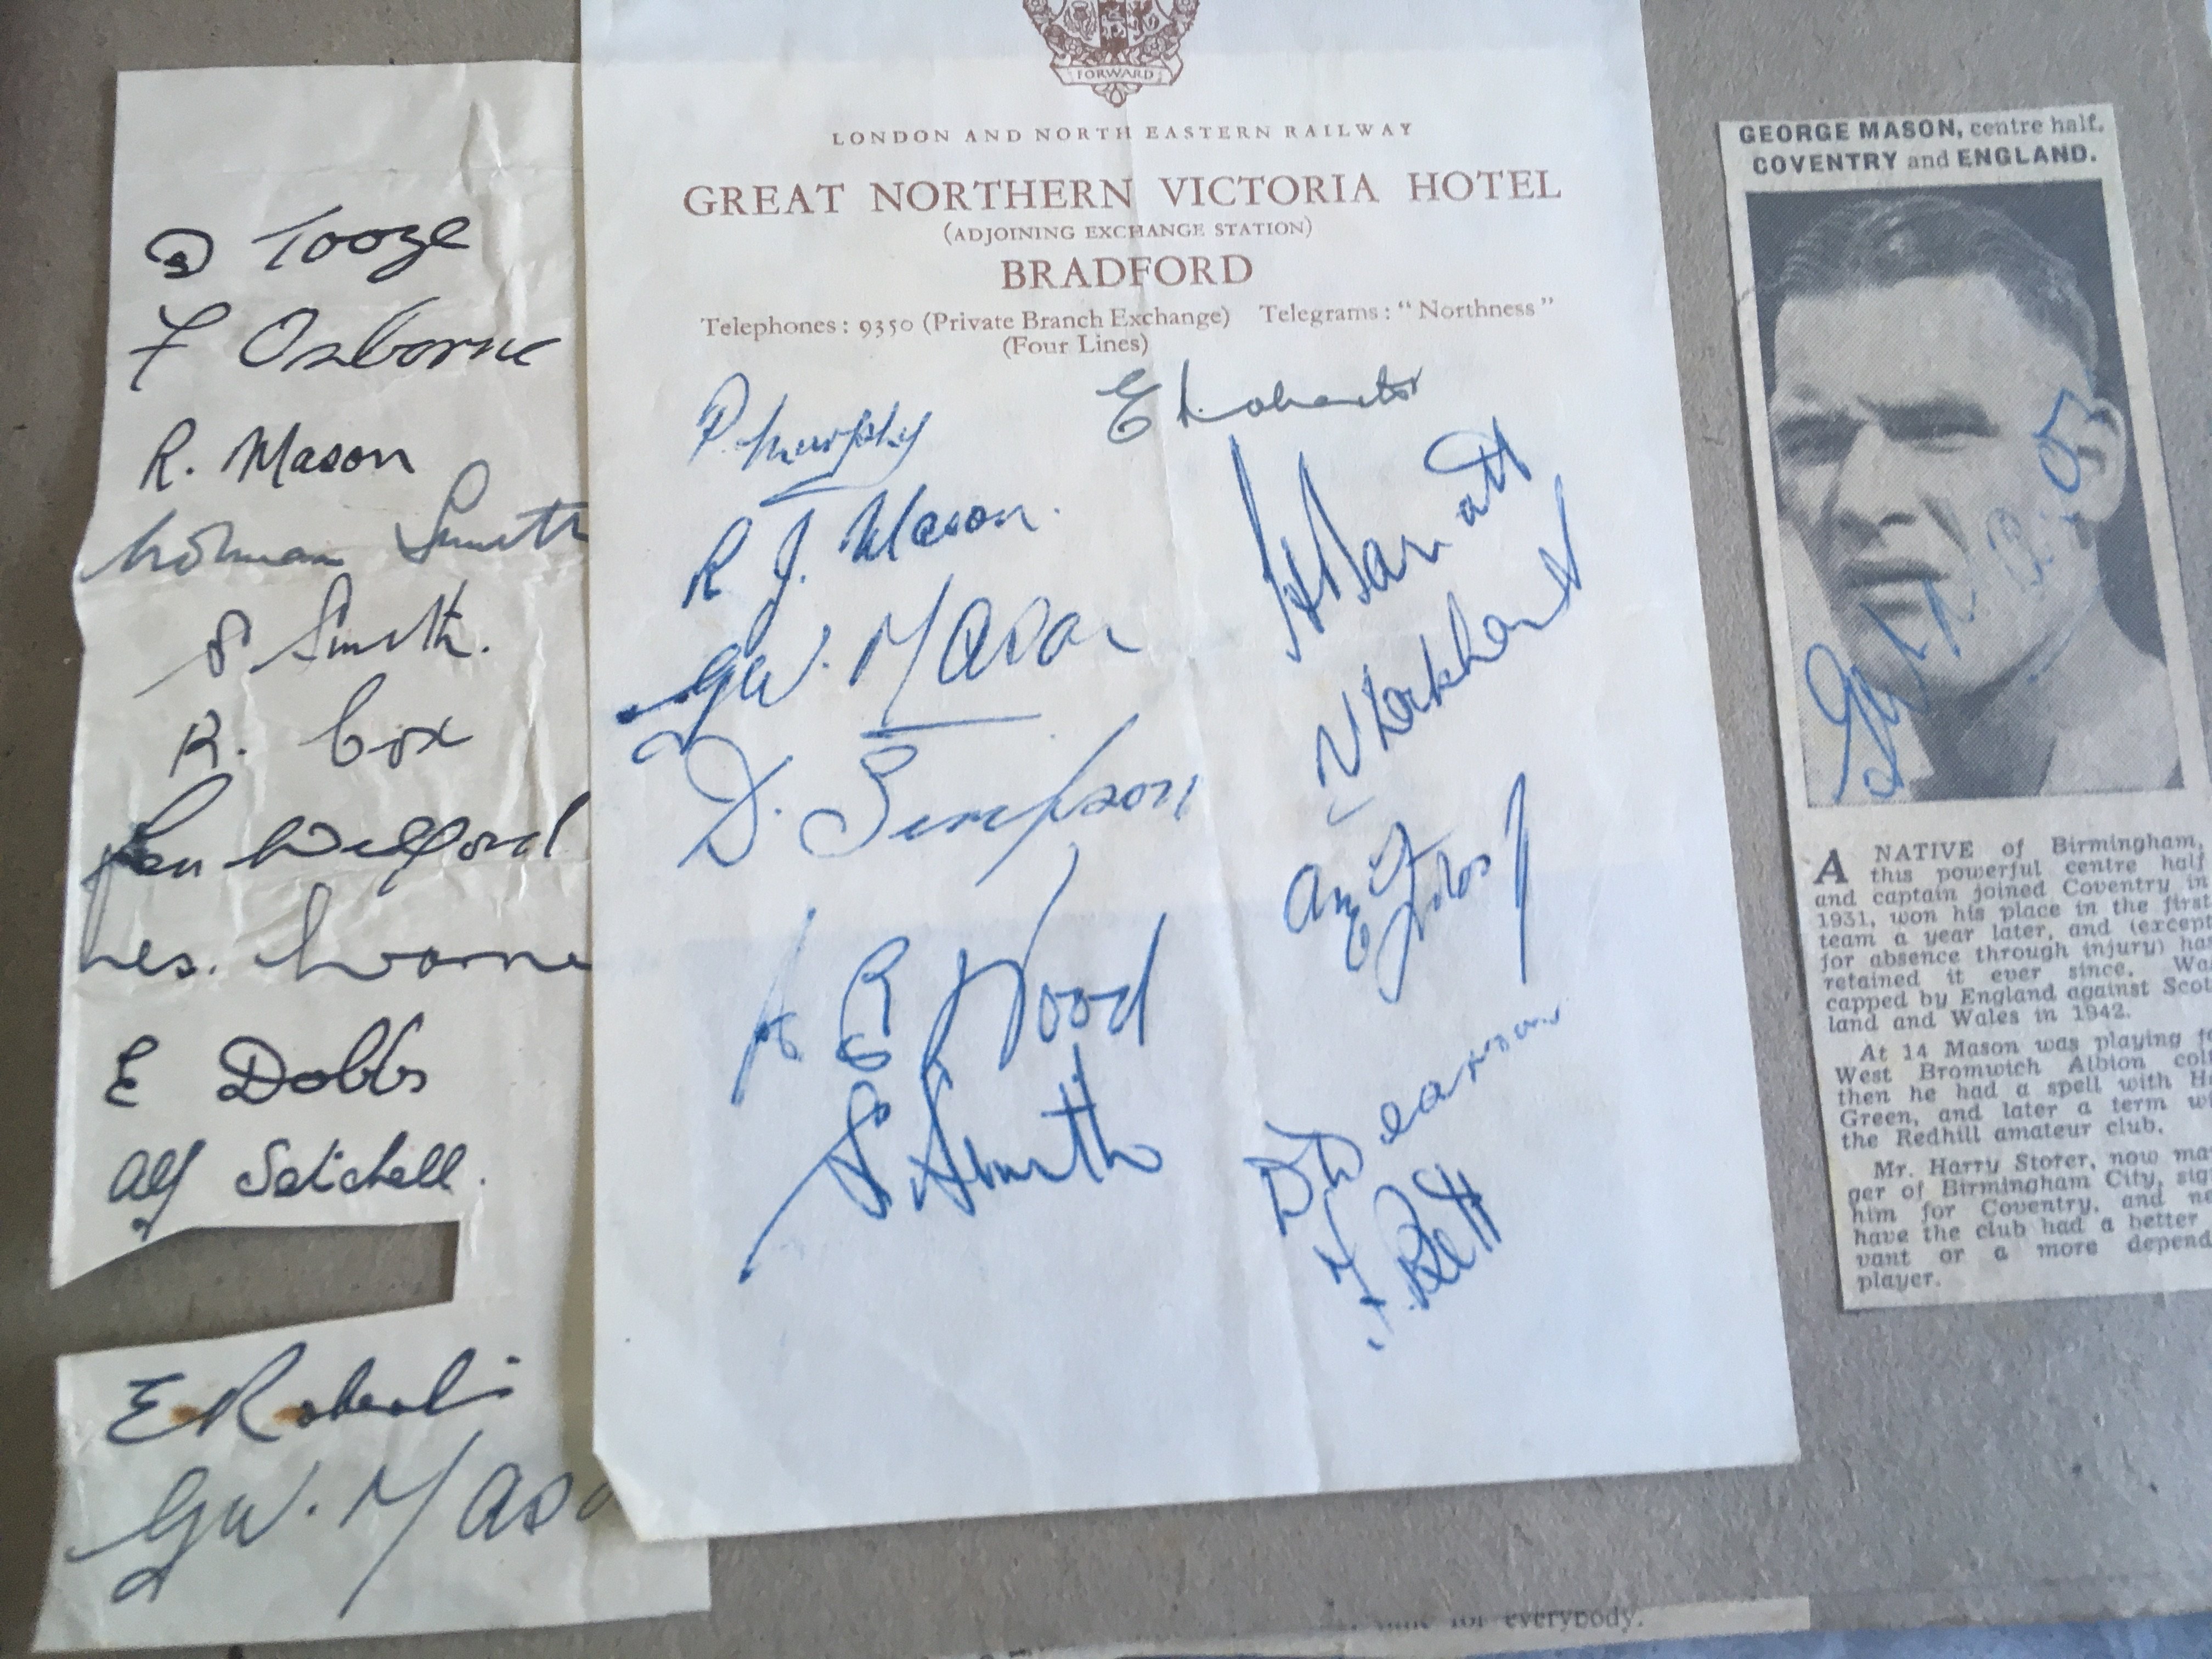 D Tooze
F Osborne
R. Mason
Norman Smith
S Smith.
R. Cox
Len Welford
Les. Warne
E Dobbs
Alf Setchell.
E Roberts
GW. Maso
FORWARD
LONDON AND NORTH EASTERN RAILWAY
GREAT NORTHERN VICTORIA HOTEL
(ADJOINING EXCHANGE STATION)
BRADFORD
Telephones: 9350 (Private Branch Exchange) Telegrams: "Northness"
(Four Lines)
P. Murphy
R J. Mason.
GW. Mason
D. Simpson
A R Wood
S Smith
E Roberts
H Barratt
N Lockhart
D Dearson
F. Betts
GEORGE MASON, centre half,
COVENTRY and ENGLAND.
A NATIVE of Birmingham,
this powerful centre half
and captain joined Coventry in
1931, won his place in the first
team a year later, and (except
for absence through injury) has
retained it ever since. Wa
capped by England against Scot
land and Wales in 1942.
At 14 Mason was playing f
West Bromwich Albion col
then he had a spell with H
Green, and later a term wi
the Redhill amateur club.
Mr. Harry Storer, now ma
ger of Birmingham City, sig
him for Coventry, and ne
have the club had a better
vant or a more depend
player.
for everybody.